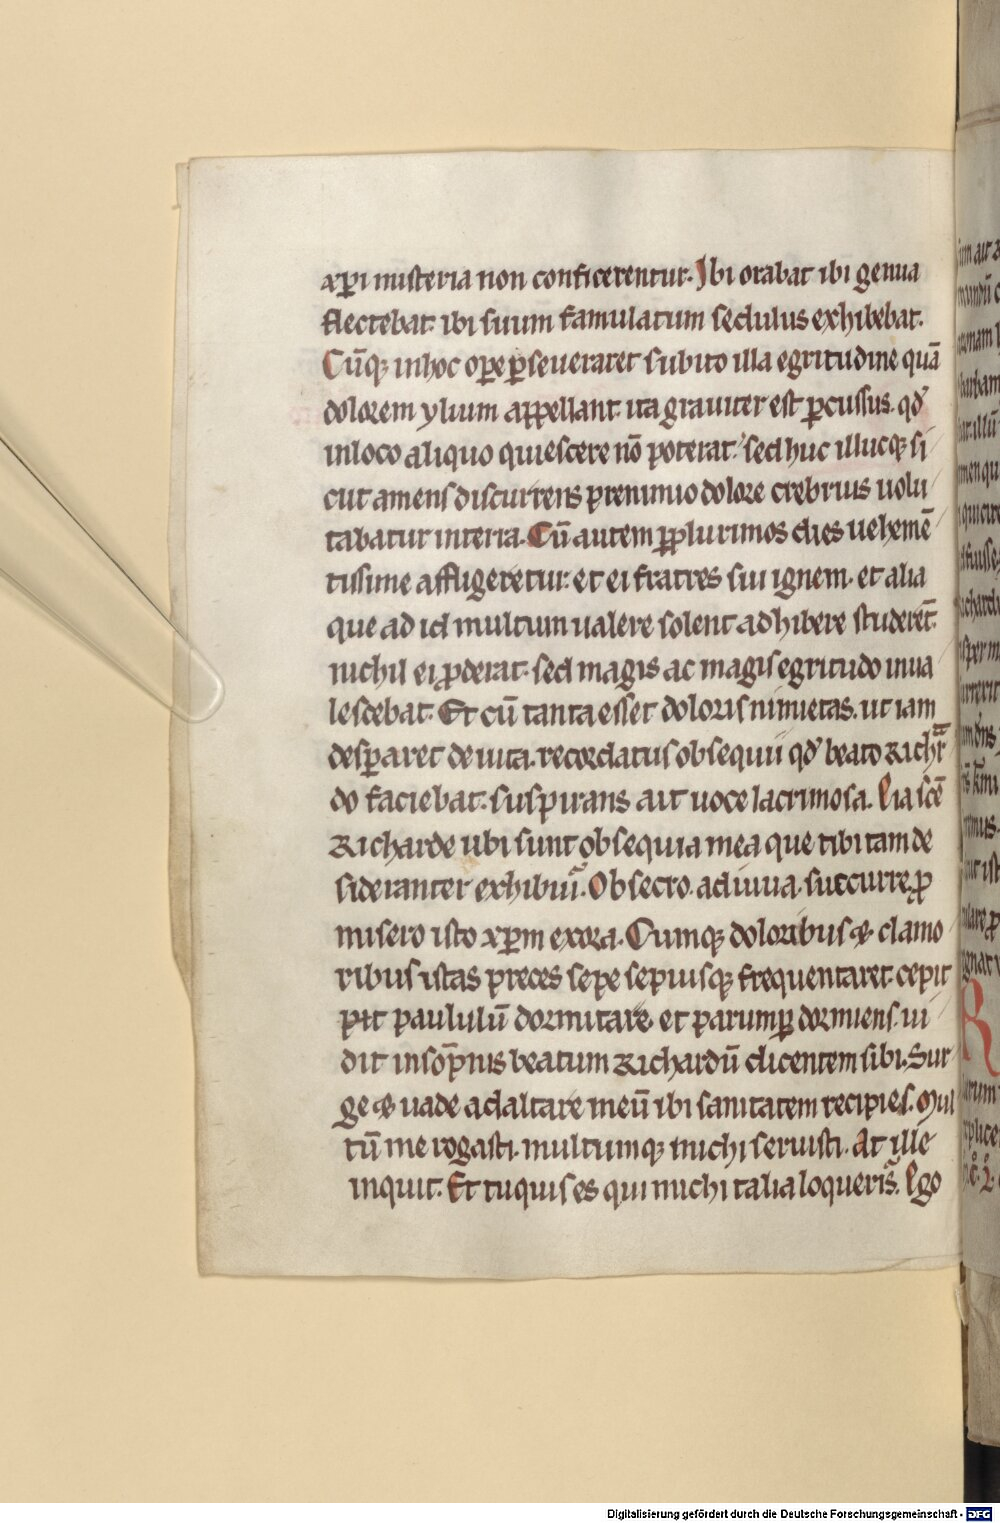 xp̄i misteria non conficerentur. Ibi orabat ibi genua
flectebat. ibi suum famulatum sedulus exhibebat.
Cūq; in hoc oꝑe ꝑseueraret subito illa egritudine quā
dolorem ylium appellant. ita grauiter est ꝑcussus. qd̕
in loco aliquo quiescere nō poterat. sed huc illucq; si
cut amens discurrens pre nimio dolore crebrius uolu
tabatur in terra. Cū autem ꝑ plurimos dies uehemē
tissime affligeretur. et ei fratres sui ignem. et alia
que ad id multum ualere solent adhibere studerēt.
nichil ei ꝓderat. sed magis ac magis egritudo inua
lescebat. Et cū tanta esset doloris nimietas. ut iam
desꝑaret de uita. recordatus obsequii qd̕ beato Richar
do faciebat. suspirans ait uoce lacrimosa. Eia scē
Richarde ubi sunt obsequia mea que tibi tam de
sideranter exhibui. Obsecro. adiuua. succurre. ꝓ
misero isto xp̄m exora. Cumq; doloribus & clamo
ribus istas preces sepe sepiusq; frequentaret. cepit
pit paululū dormitare. et parumꝑ dormiens. ui
dit in sōpnis beatum Richardū dicentem sibi. Sur
ge & uade ad altare meū ibi sanitatem recipies. Mul
tū me rogasti. multumq; michi seruisti. At ille
inquit. Et tu quis es qui michi talia loqueris. Ego
Digitalisierung gefördert durch die Deutsche Forschungsgemeinschaft - DFG